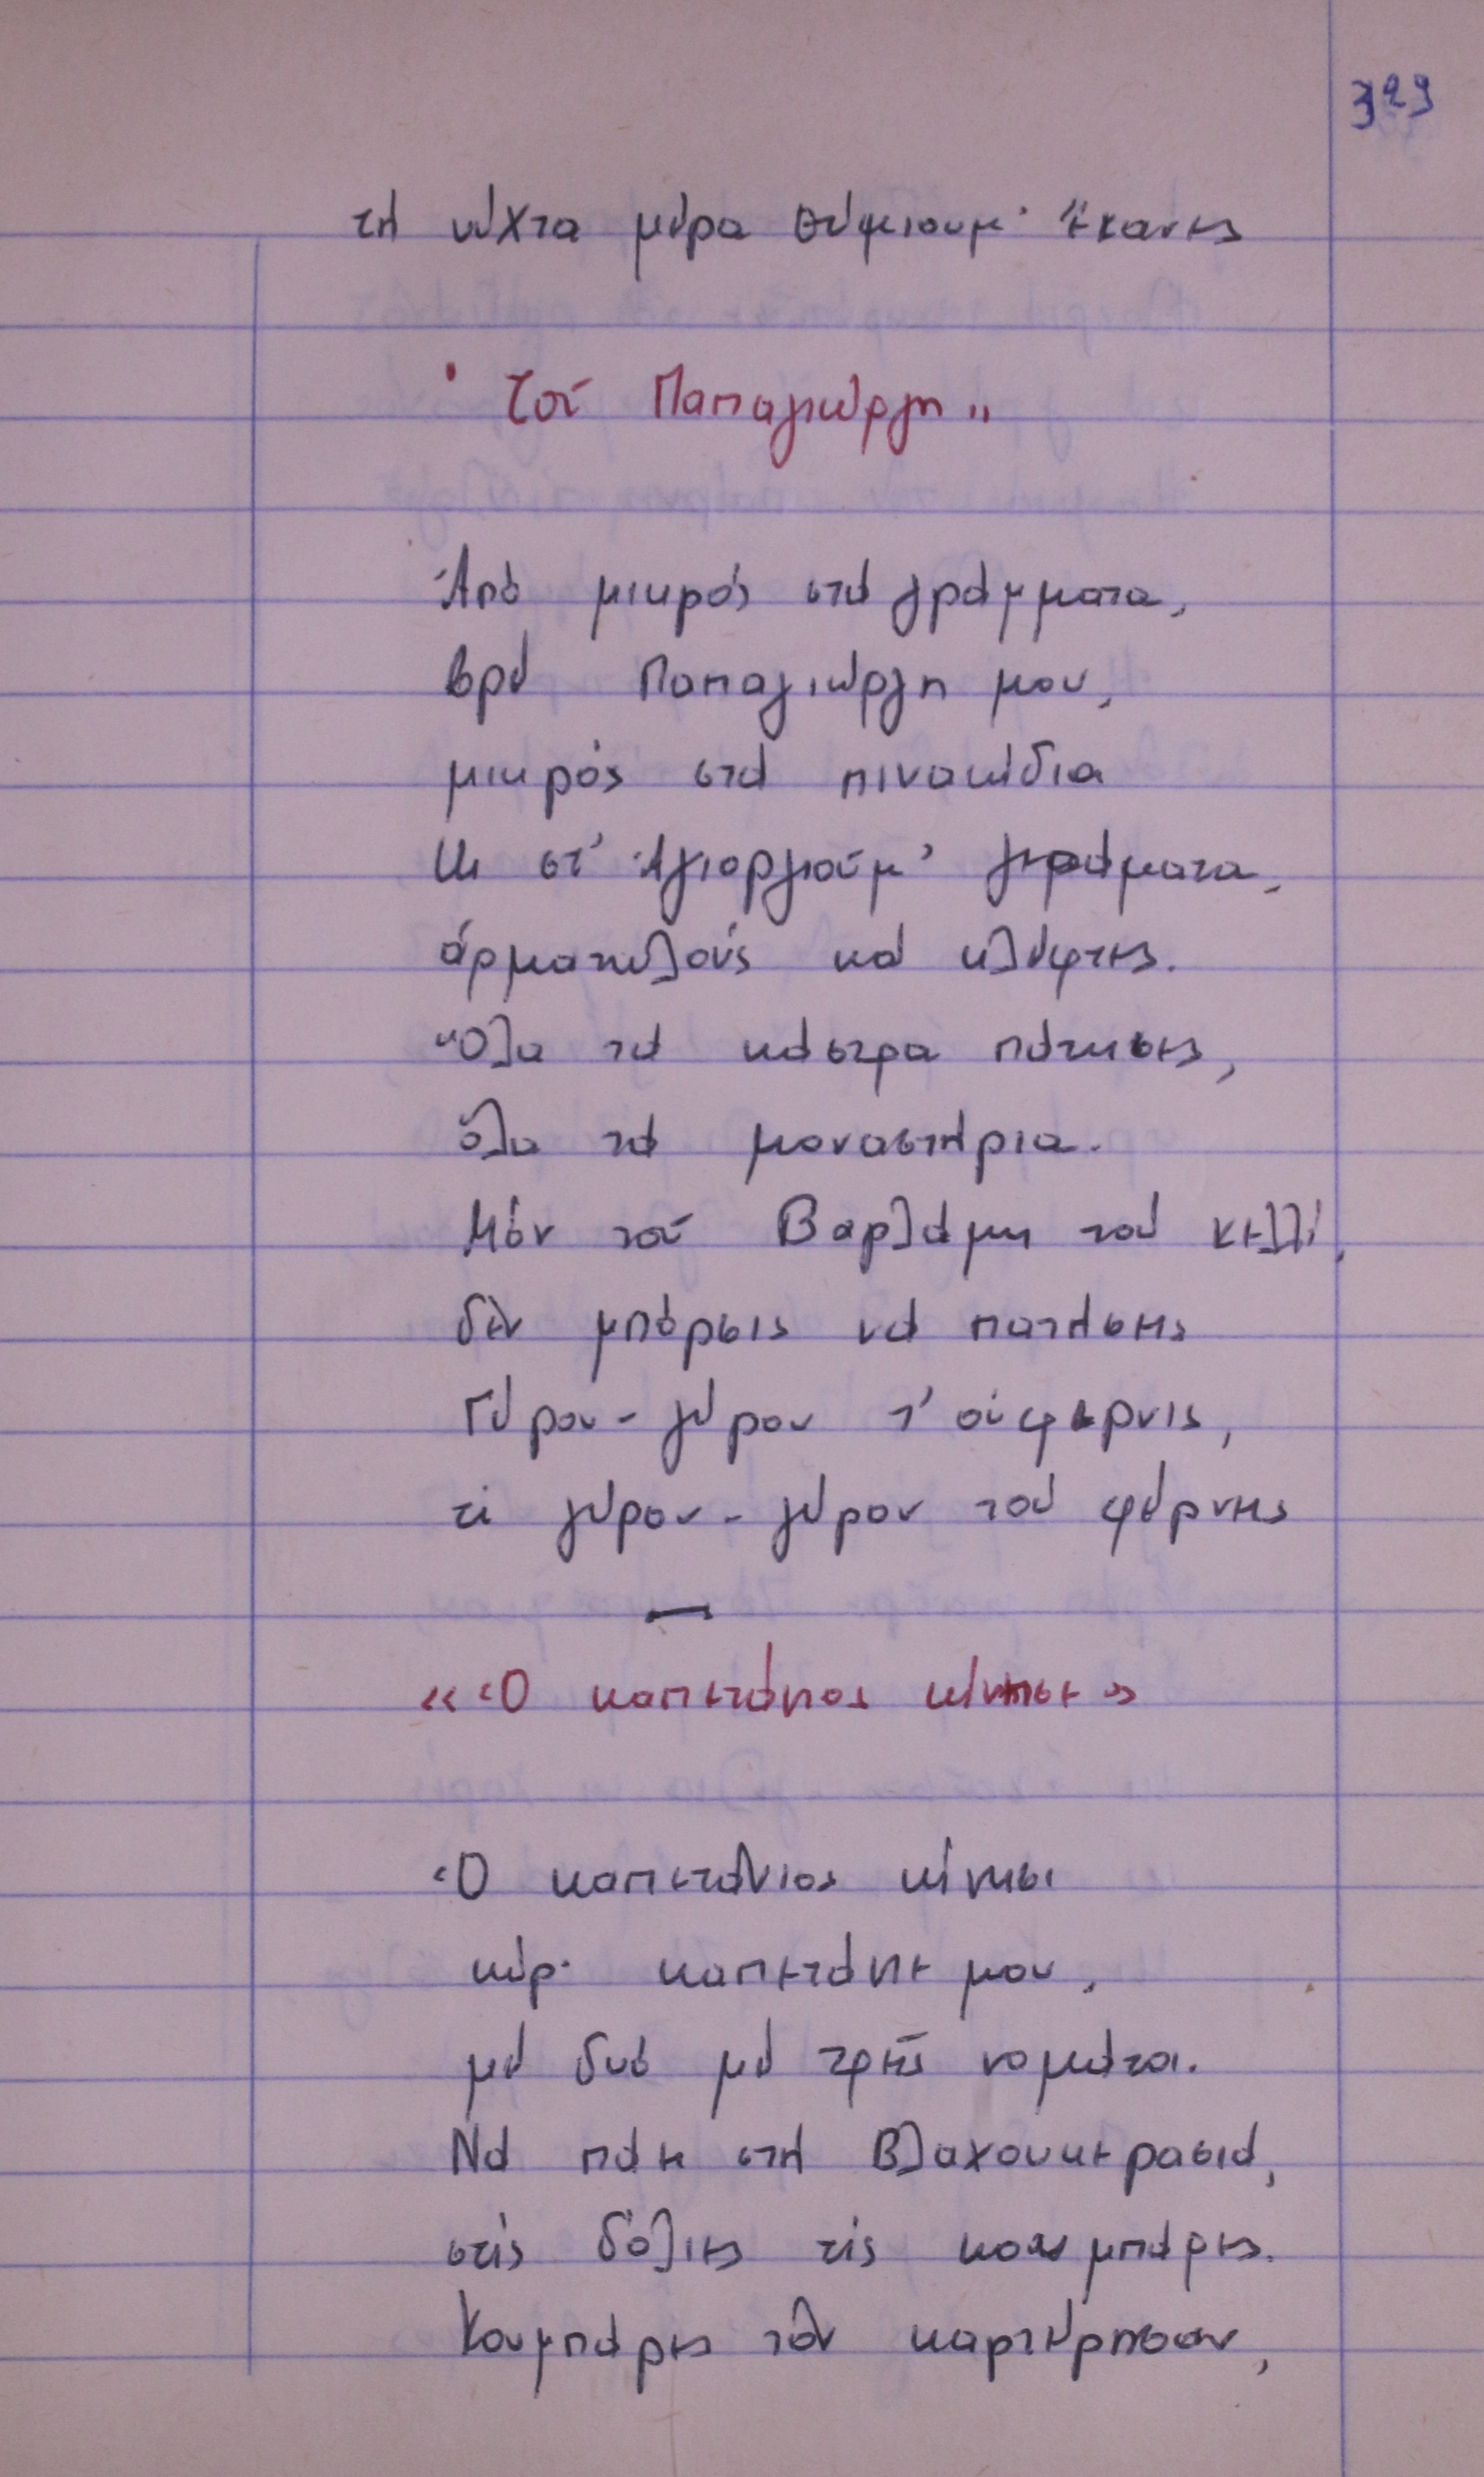 329
τή νύχτα μέρα θύμιουμ' ἔκανες
" Τοῦ Παπαγιώργη "
Ἀπό μικρός στά γράμματα,
βρέ Παπαγιώργη μου,
μικρός στά πινακίδια
Κι στ' Ἁγιοργιούμ' γράμματα,
ἀρματωλούς κά κλέφτες.
Ὅλα τά κάστρα πάτησες,
ὅλα τά μοναστήρια.
Μόν τοῦ Βαρλάμη τού κελλί,
δέν μπόρσις νά πατήσης
Γύρου-γύρου τ' οὑφερνις,
τί γύρου-γύρου τού φέρνης
«Ὁ καπετάνιος κίνησε»
Ὁ καπετάνιος κίνησι
κύρ' καπετάνε μου,
μέ δυό μέ τρεῖς νομάτοι.
Νά πάη στή Βλαχουκερασιά,
στίς δόλιες τίς κουμπάρες.
Κουμπάρες τόν καρτέρησαν,